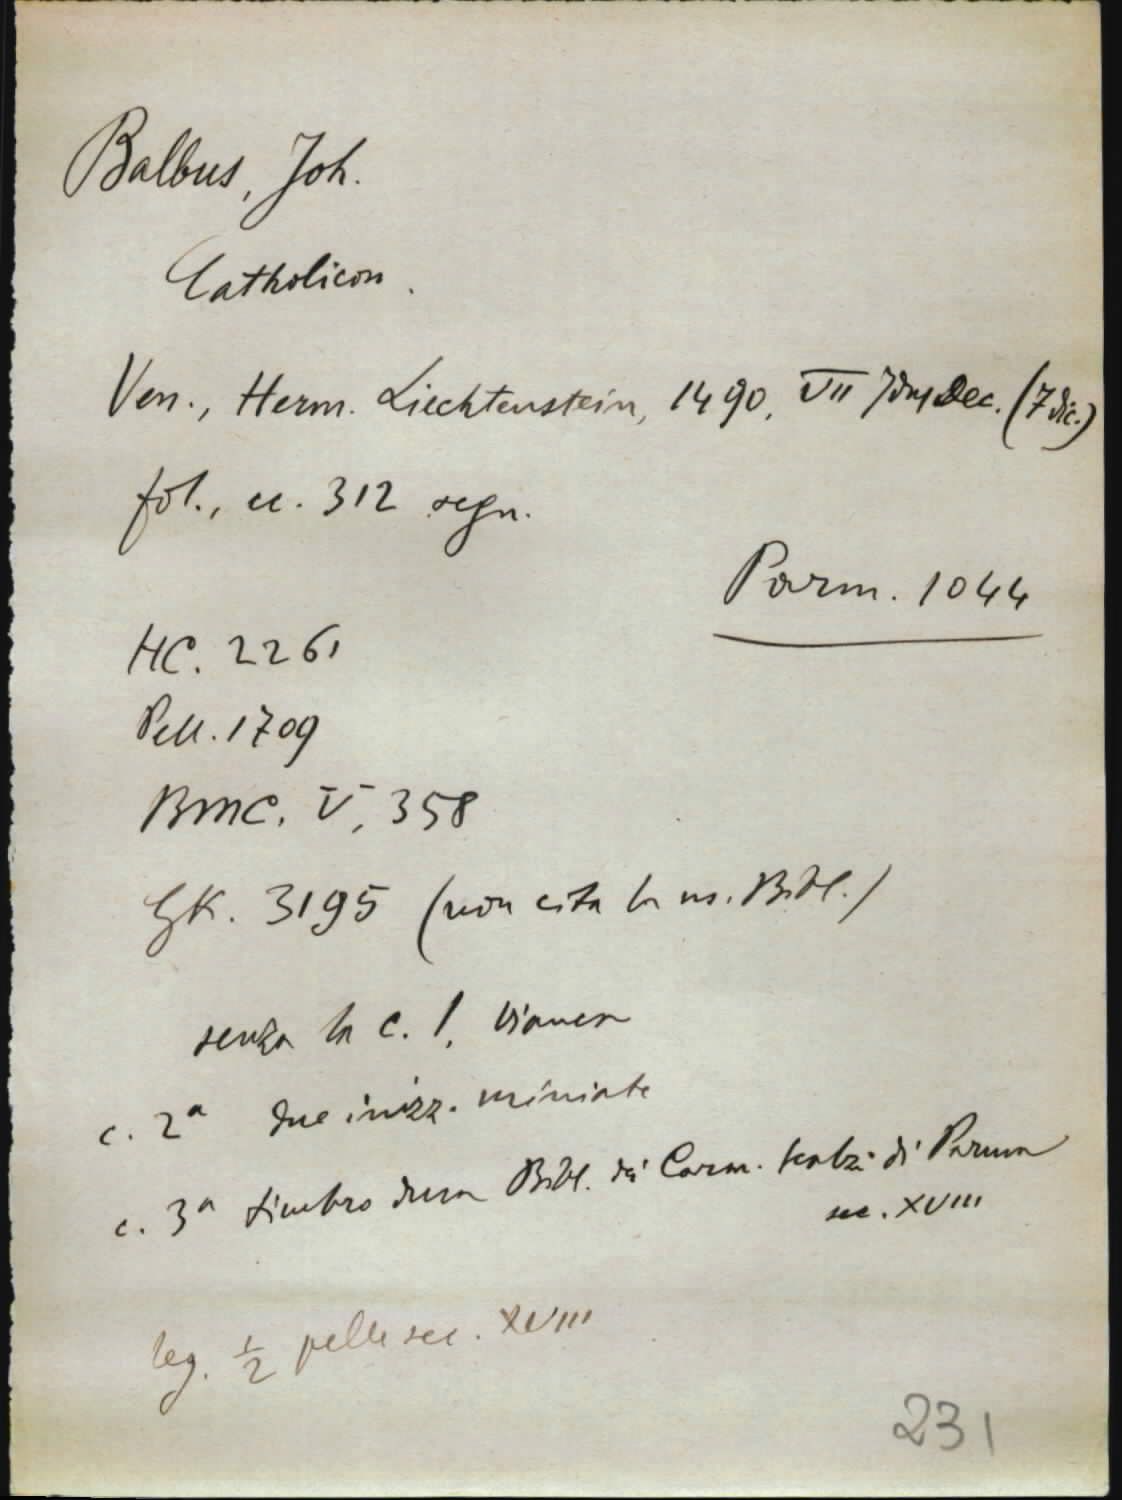 Balbus, Joh.
Catholicon.
Ven., Herm. Liechtenstein, 1490, VII Idus Dec. (7 dic.)
fol., cc. 312 segn.
Parm. 1044
HC. 2261
Pell. 1709
BMC. V, 358
GK. 3195 (non cita la ns. Bibl.)
senza la c. 1, bianca
c. 2ª due inizz. miniate
c. 3ª timbro della Bibl. dei Carm. scalzi di Parma
sec. XVIII
leg. ½ pelle sec. XVIII
231